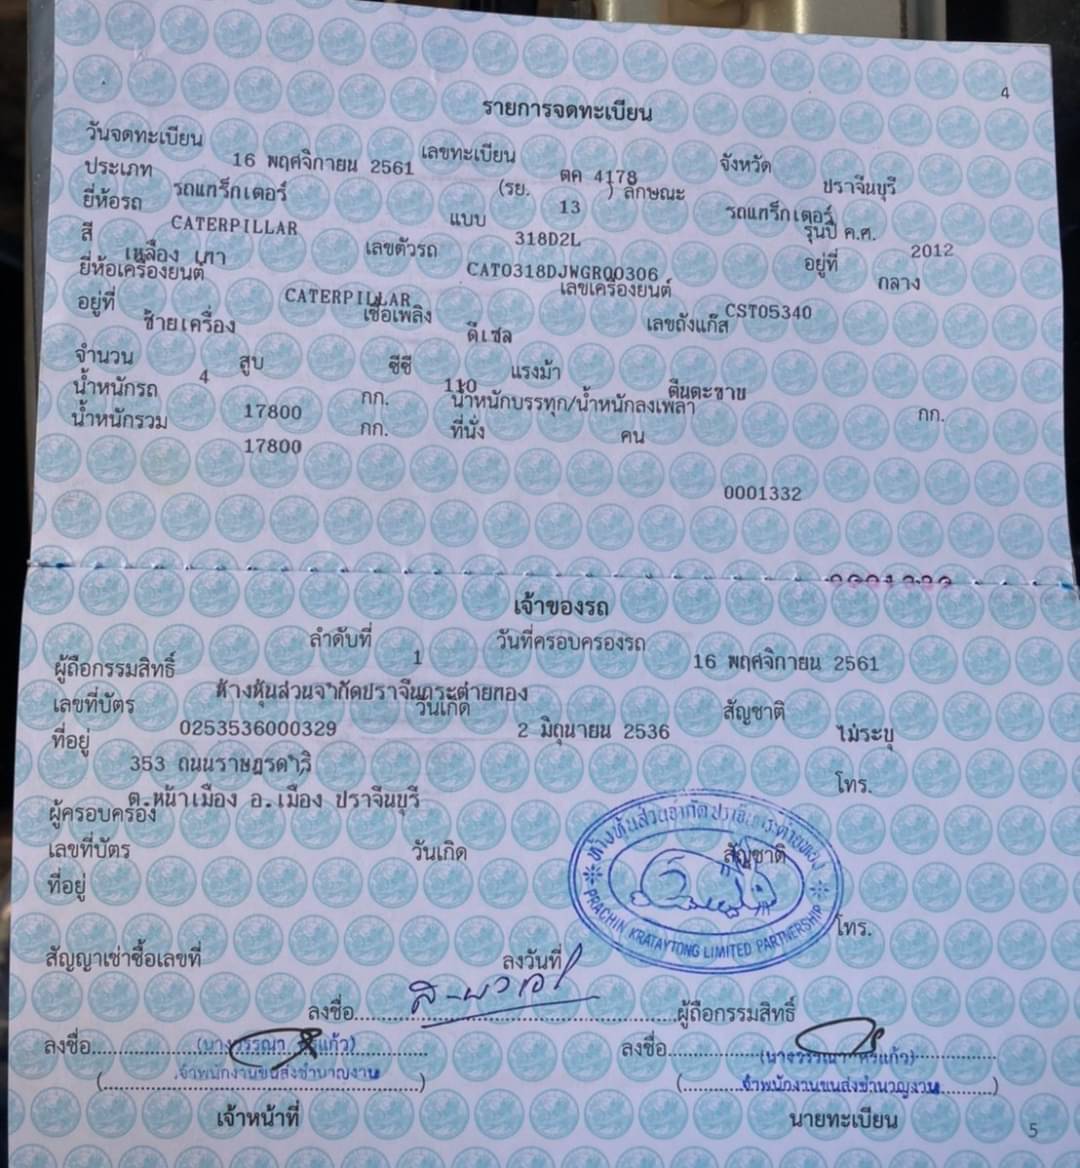 4
รายการจดทะเบียน
วันจดทะเบียน 16 พฤศจิกายน 2561 เลขทะเบียน ตค 4178 จังหวัด ปราจีนบุรี
ประเภท รถแทร็กเตอร์ (รย. 13 ) ลักษณะ รถแทร็กเตอร์
ยี่ห้อรถ CATERPILLAR แบบ 318D2L รุ่นปี ค.ศ. 2012
สี เหลือง เทา เลขตัวรถ CAT0318DJWGR00306 อยู่ที่ กลาง
ยี่ห้อเครื่องยนต์ CATERPILLAR เลขเครื่องยนต์ CST05340
อยู่ที่ ซ้ายเครื่อง เชื้อเพลิง ดีเซล เลขถังแก๊ส
จำนวน 4 สูบ ซีซี 110 แรงม้า ตีนตะขาบ
น้ำหนักรถ 17800 กก. น้ำหนักบรรทุก/น้ำหนักลงเพลา กก.
น้ำหนักรวม 17800 กก. ที่นั่ง คน
0001332
เจ้าของรถ
ลำดับที่ 1 วันที่ครอบครองรถ 16 พฤศจิกายน 2561
ผู้ถือกรรมสิทธิ์ ห้างหุ้นส่วนจำกัดปราจีนกระต่ายทอง
เลขที่บัตร 0253536000329 วันเกิด 2 มิถุนายน 2536 สัญชาติ ไม่ระบุ
ที่อยู่ 353 ถนนราษฎรดำริ
ต.หน้าเมือง อ.เมือง ปราจีนบุรี โทร.
ผู้ครอบครอง
เลขที่บัตร วันเกิด สัญชาติ
ที่อยู่
โทร.
ห้างหุ้นส่วนจำกัด ปราจีนกระต่ายทอง
PRACHIN KRATAYTONG LIMITED PARTNERSHIP
สัญญาเช่าซื้อเลขที่ ลงวันที่
ลงชื่อ ผู้ถือกรรมสิทธิ์
ลงชื่อ (นางวรรณา ศรีแก้ว) ลงชื่อ (นางวรรณา ศรีแก้ว)
(เจ้าพนักงานขนส่งชำนาญงาน) (เจ้าพนักงานขนส่งชำนาญงาน)
เจ้าหน้าที่ นายทะเบียน
5